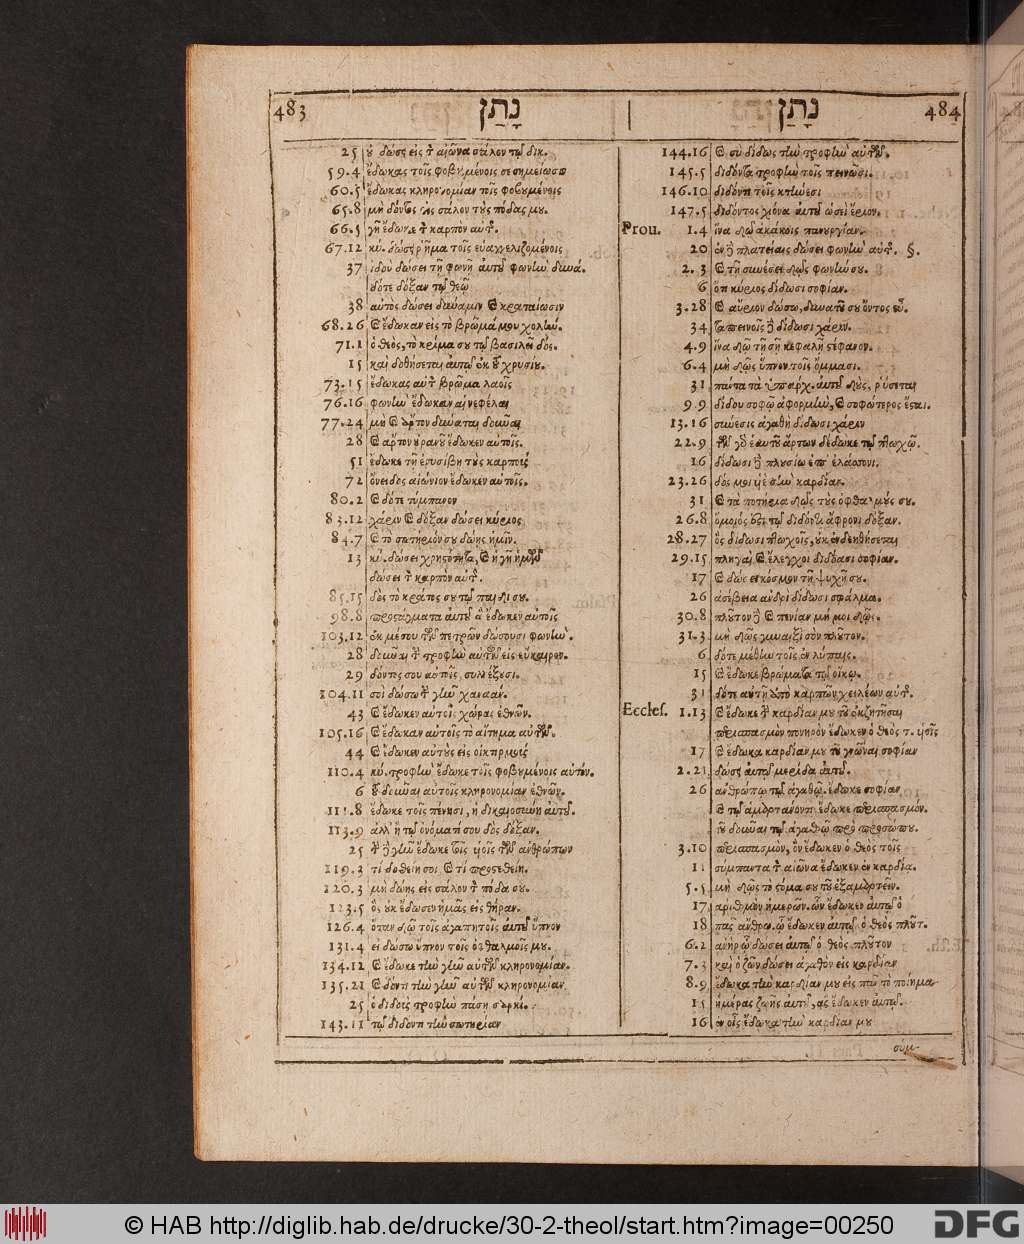 483
נָתַן
נָתַן
484
25 οὐ δώσει εἰς τὸν αἰῶνα σάλον τῷ δικ.
59.4 ἔδωκας τοῖς φοβουμένοις σε σημείωσιν
60.5 ἔδωκας κληρονομίαν τοῖς φοβουμένοις
65.8 μὴ δόντος εἰς σάλον τοὺς πόδας μου.
66.5 γῆ ἔδωκε τὸν καρπὸν αὐτῆς.
67.12 κύ. δώσει ῥῆμα τοῖς εὐαγγελιζομένοις
37 ἰδοὺ δώσει τῇ φωνῇ αὐτοῦ φωνὴν δυνά.
δότε δόξαν τῷ θεῷ
38 αὐτὸς δώσει δύναμιν καὶ κραταίωσιν
68.26 καὶ ἔδωκαν εἰς τὸ βρῶμά μου χολήν.
71.1 ὁ θεὸς, τὸ κρίμα σου τῷ βασιλεῖ δός.
15 καὶ δοθήσεται αὐτῷ ἐκ τοῦ χρυσίου.
73.15 ἔδωκας αὐτὸν βρῶμα λαοῖς
76.16 φωνὴν ἔδωκαν αἱ νεφέλαι
77.24 μὴ καὶ ἄρτον δύναται δοῦναι
28 καὶ ἄρτον οὐρανοῦ ἔδωκεν αὐτοῖς.
51 ἔδωκε τῇ ἐρυσίβῃ τοὺς καρποὺς
72 ὄνειδος αἰώνιον ἔδωκεν αὐτοῖς.
80.2 καὶ δότε τύμπανον
83.12 χάριν καὶ δόξαν δώσει κύριος
84.7 καὶ τὸ σωτήριόν σου δῴης ἡμῖν.
13 κύ. δώσει χρηστότητα, καὶ ἡ γῆ ἡμῶν
δώσει τὸν καρπὸν αὐτῆς.
85.15 δὸς τὸ κράτος σου τῷ παιδί σου.
98.8 προστάγματα αὐτοῦ ἃ ἔδωκεν αὐτοῖς
103.12 ἐκ μέσου τῶν πετρῶν δώσουσι φωνήν.
28 δοῦναι τὴν τροφὴν αὐτῶν εἰς εὔκαιρον.
29 δόντος σου αὐτοῖς, συλλέξουσι.
104.11 σοὶ δώσω τὴν γῆν χαναάν.
43 καὶ ἔδωκεν αὐτοῖς χώρας ἐθνῶν.
105.16 καὶ ἔδωκαν αὐτοῖς τὸ αἴτημα αὐτῶν.
44 καὶ ἔδωκεν αὐτοὺς εἰς οἰκτιρμοὺς
110.4 κύ. τροφὴν ἔδωκε τοῖς φοβουμένοις αὐτόν.
6 τοῦ δοῦναι αὐτοῖς κληρονομίαν ἐθνῶν.
111.8 ἔδωκε τοῖς πένησι, ἡ δικαιοσύνη αὐτοῦ.
113.9 ἀλλ᾽ ἢ τῷ ὀνόματί σου δὸς δόξαν.
25 τὴν δὲ γῆν ἔδωκε τοῖς υἱοῖς τῶν ἀνθρώπων
119.3 τί δοθείη σοι καὶ τί προστεθείη.
120.3 μὴ δῴης εἰς σάλον τὸν πόδα σου.
123.5 ὃς οὐκ ἔδωκεν ἡμᾶς εἰς θήραν.
126.4 ὅταν δῷ τοῖς ἀγαπητοῖς αὐτοῦ ὕπνον
131.4 εἰ δώσω ὕπνον τοῖς ὀφθαλμοῖς μου.
134.12 καὶ ἔδωκε τὴν γῆν αὐτῶν κληρονομίαν.
135.21 καὶ δόντι τὴν γῆν αὐτῶν κληρονομίαν
25 ὁ διδοὺς τροφὴν πάσῃ σαρκί.
143.11 τῷ διδόντι τὴν σωτηρίαν
144.16 καὶ σὺ δίδως τὴν τροφὴν αὐτῶν.
145.5 διδόντα τροφὴν τοῖς πεινῶσι.
146.10 διδόντι τοῖς κτήνεσι
147.5 διδόντος χιόνα αὐτοῦ ὡσεὶ ἔριον.
Prou. 1.4 ἵνα δῷ ἀκάκοις πανουργίαν.
20 ἐν δὲ πλατείαις δώσει φωνὴν αὐτῆς. §.
2.3 καὶ τῇ συνέσει δῷς φωνήν σου.
6 ὅτι κύριος δίδωσι σοφίαν.
3.28 καὶ αὔριον δώσω, δυνατοῦ σου ὄντος εὖ.
34 ταπεινοῖς δὲ δίδωσι χάριν.
4.9 ἵνα δῷ τῇ σῇ κεφαλῇ στέφανον.
6.4 μὴ δῷς ὕπνον τοῖς ὄμμασι.
31 πάντα τὰ ὑπάρχ. αὐτοῦ δοὺς, ῥύσεται
9.9 δίδου σοφῷ ἀφορμὴν, καὶ σοφώτερος ἔσται.
13.16 σύνεσις ἀγαθὴ δίδωσι χάριν
22.9 τῶν γὰρ ἑαυτοῦ ἄρτων δέδωκε τῷ πτωχῷ.
16 δίδωσι δὲ πλουσίῳ ἐπ᾽ ἐλάσσονι.
23.26 δός μοι υἱὲ σὴν καρδίαν.
31 καὶ τὰ ποτήρια δῷς τοὺς ὀφθαλμούς σου.
26.8 ὅμοιός ἐστι τῷ διδόντι ἄφρονι δόξαν.
28.27 ὃς δίδωσι πτωχοῖς, οὐκ ἐνδεηθήσεται
29.15 πληγαὶ καὶ ἔλεγχοι διδόασι σοφίαν.
17 καὶ δώσει κόσμον τῇ ψυχῇ σου.
26 ἀσέβεια ἀνδρὶ δίδωσι σφάλμα.
30.8 πλοῦτον δὲ καὶ πενίαν μή μοι δῷς.
31.3 μὴ δῷς γυναιξὶ σὸν πλοῦτον.
6 δότε μέθην τοῖς ἐν λύπαις.
15 καὶ ἔδωκε βρώματα τῷ οἴκῳ.
31 δότε αὐτῇ ἀπὸ καρπῶν χειλέων αὐτῆς.
Eccles. 1.13 καὶ ἔδωκε τὴν καρδίαν μου τοῦ ἐκζητῆσαι
περισπασμὸν πονηρὸν ἔδωκεν ὁ θεὸς τ. υἱοῖς
17 καὶ ἔδωκα καρδίαν μου τοῦ γνῶναι σοφίαν
2.21 δώσει αὐτῷ μερίδα αὐτοῦ.
26 ἀνθρώπῳ τῷ ἀγαθῷ. ἔδωκε σοφίαν
καὶ τῷ ἁμαρτάνοντι ἔδωκε περισπασμόν.
τοῦ δοῦναι τῷ ἀγαθῷ πρὸ προσώπου.
3.10 περισπασμὸν, ὃν ἔδωκεν ὁ θεὸς τοῖς
11 σύμπαντα τὸν αἰῶνα ἔδωκεν ἐν καρδίᾳ.
5.5 μὴ δῷς τὸ στόμα σου τοῦ ἐξαμαρτεῖν.
17 ἀριθμὸν ἡμερῶν. ὧν ἔδωκεν αὐτῷ ὁ
18 πᾶς ἄνθρω. ᾧ ἔδωκεν αὐτῷ ὁ θεὸς πλοῦτ.
6.2 ἀνὴρ ᾧ δώσει αὐτῷ ὁ θεὸς πλοῦτον
7.3 καὶ ὁ ζῶν δώσει ἀγαθὸν εἰς καρδίαν
8.9 ἔδωκα τὴν καρδίαν μου εἰς πᾶν τὸ ποίημα
15 ἡμέρας ζωῆς αὐτοῦ, ἃς ἔδωκεν αὐτῷ.
16 ἐν οἷς ἔδωκα τὴν καρδίαν μου
σύμ-
© HAB http://diglib.hab.de/drucke/30-2-theol/start.htm?image=00250
DFG